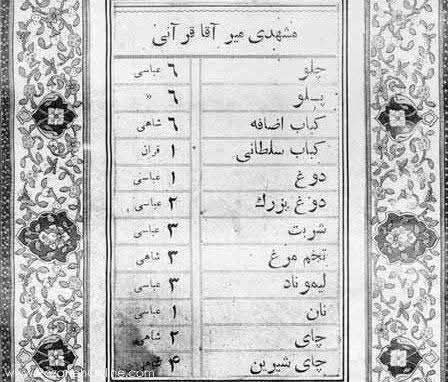 مشهدی میر آقا قرآنی
چلو ۶ عباسی
پلو ۶ »
کباب اضافه ۶ شاهی
کباب سلطانی ۱ قران
دوغ ۱ عباسی
دوغ بزرك ۲ عباسی
شربت ۳ عباسی
تخم مرغ ۳ شاهی
لیموناد ۳ عباسی
نان ۱ عباسی
چای ۲ شاهی
چای شیرین ۴